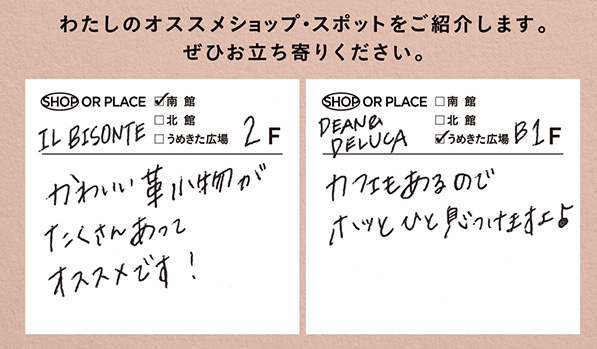 わたしのオススメショップ・スポットをご紹介します。
ぜひお立ち寄りください。
SHOP OR PLACE
南館
北館
うめきた広場
IL BISONTE
2F
かわいい革小物が
たくさんあって
オススメです!
SHOP OR PLACE
南館
北館
うめきた広場
DEAN&
DELUCA
B1F
カフェもあるので
ホッとひと息つけますよ♪